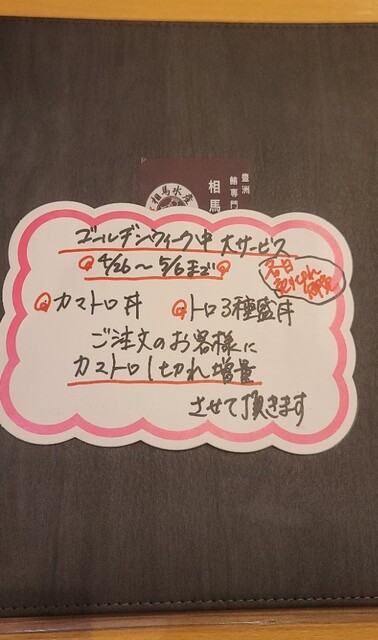 豊洲
鮪専門
相馬
相馬水産
ゴールデンウィーク中 大サービス
4/26～5/6まで
各日
カマトロ丼 トロ3種盛丼
ご注文のお客様に
カマトロ1切れ増量
させて頂きます